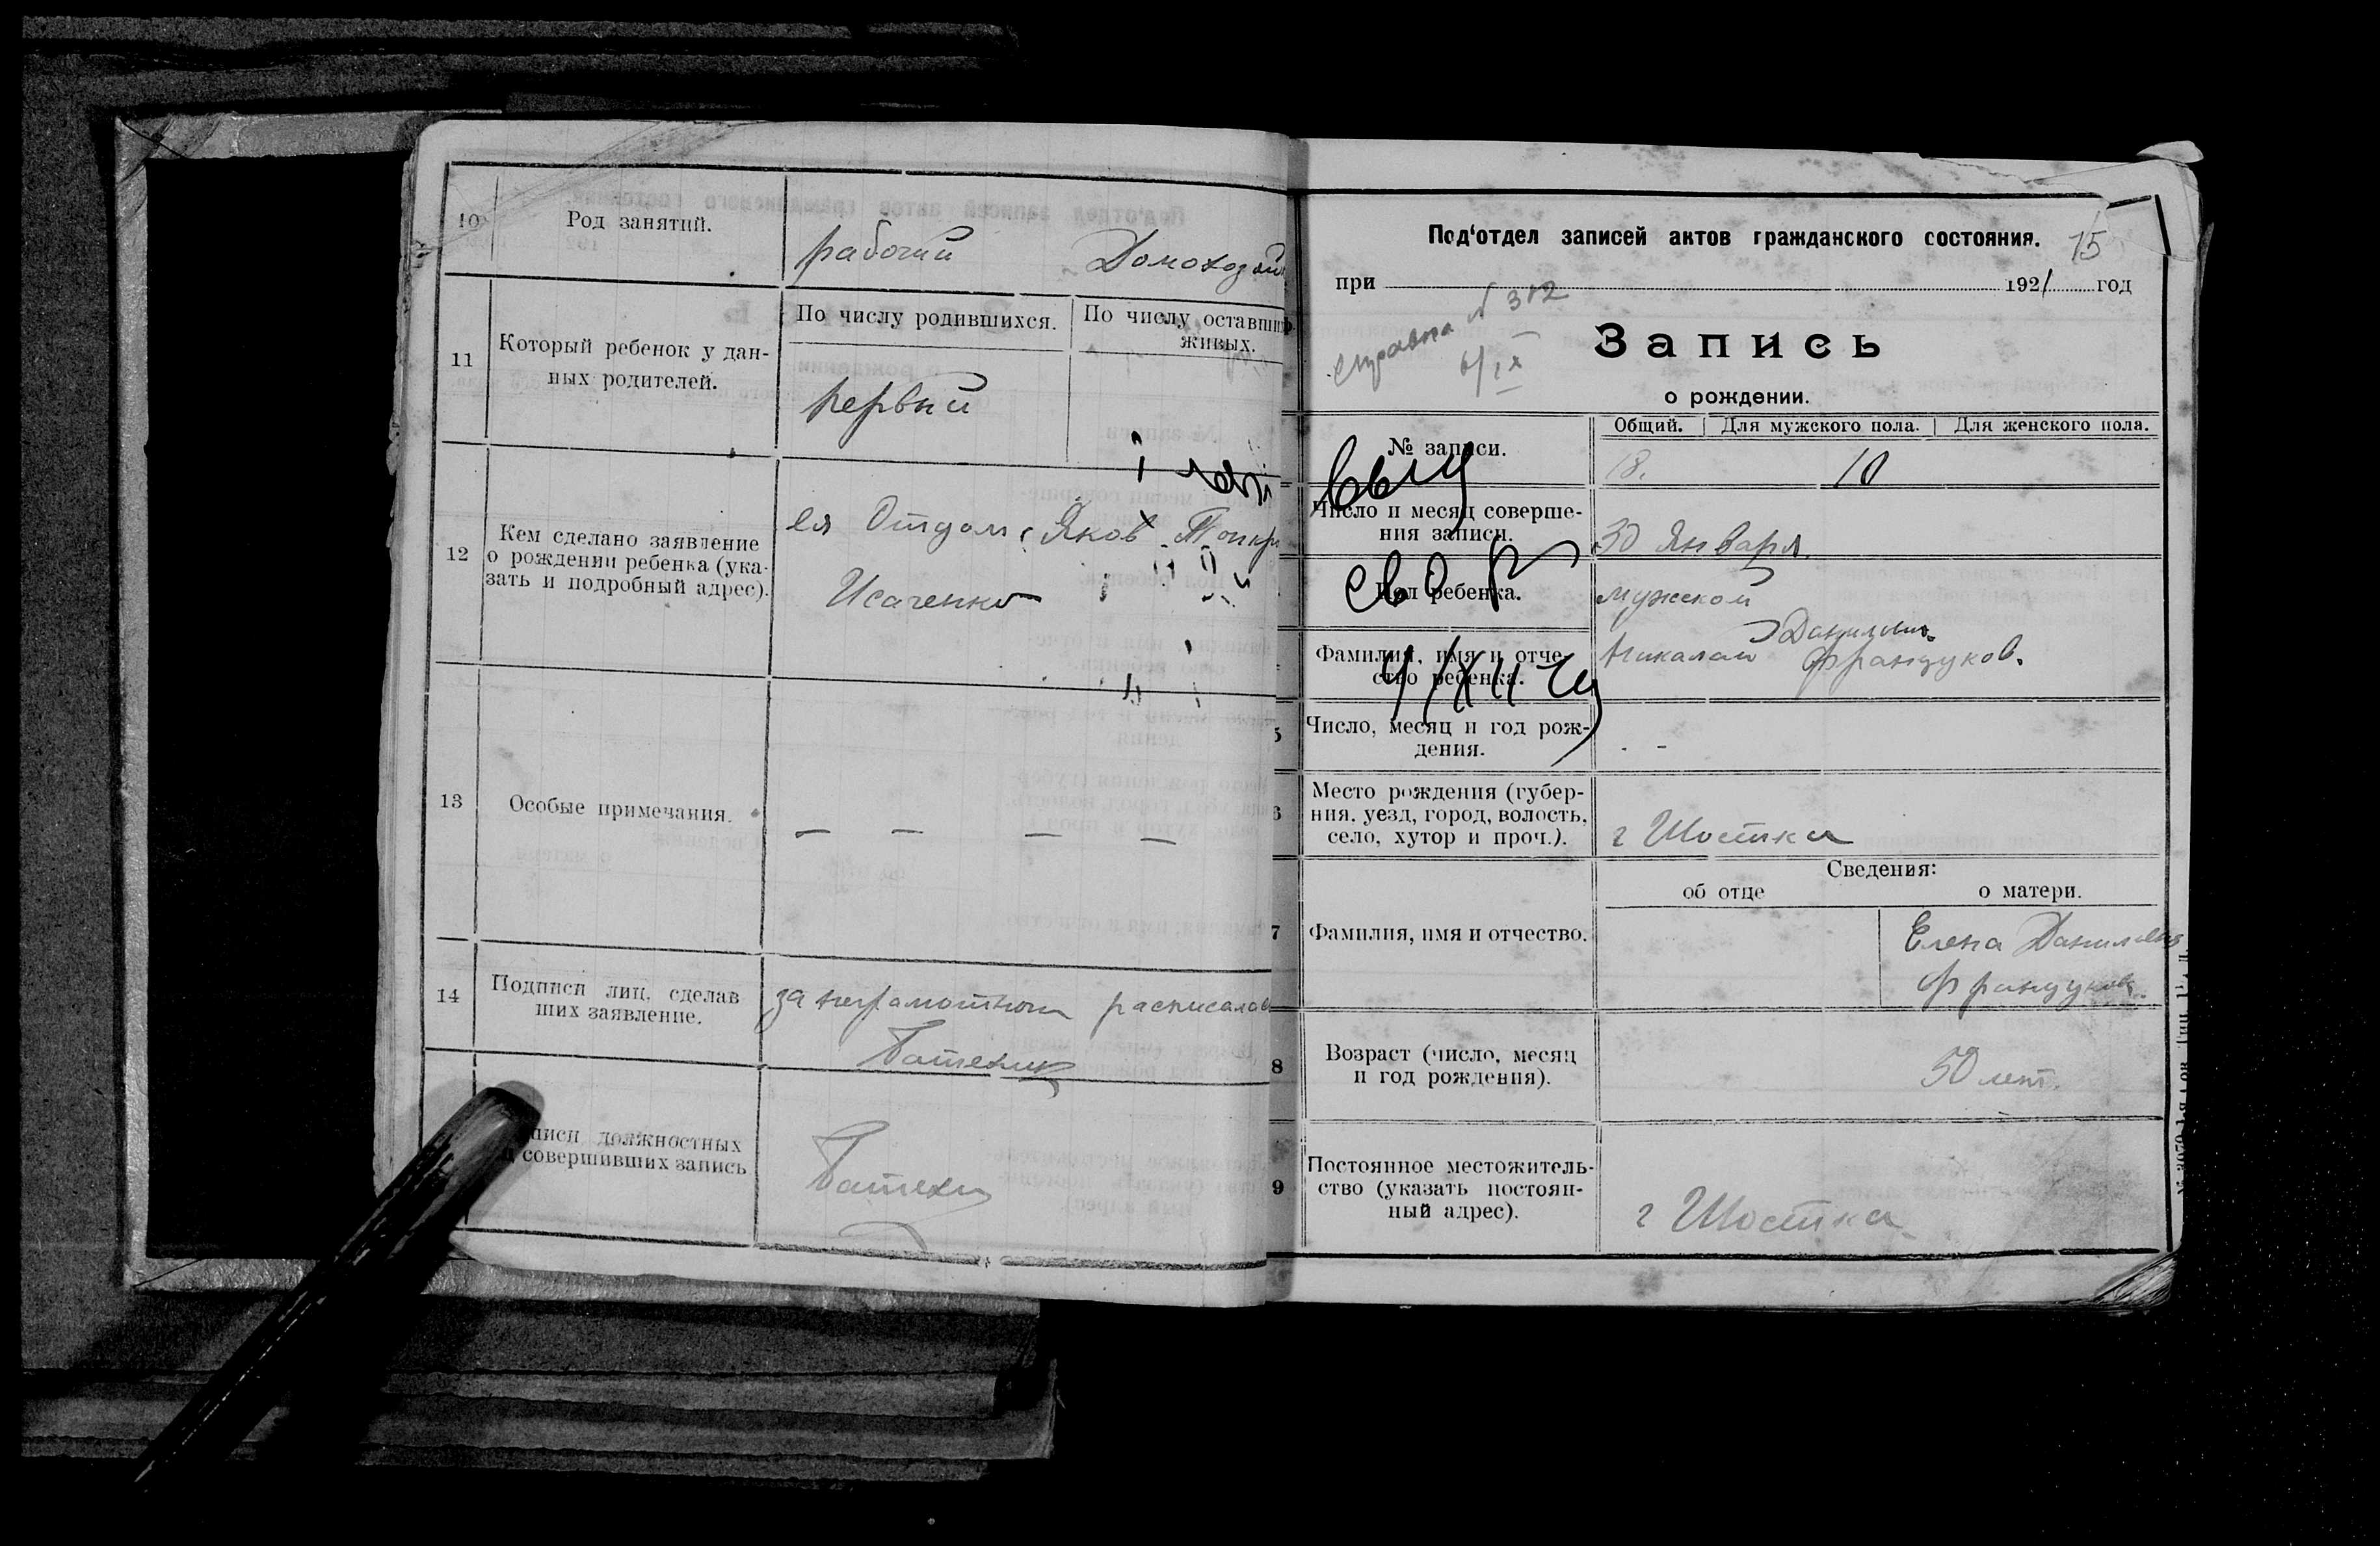 10
Род занятий.
рабочий
Домохозяй
11
Который ребенок у дан-
ных родителей.
По числу родившихся.
По числу оставших
живых.
первый
12
Кем сделано заявление
о рождении ребенка (ука-
зать и подробный адрес).
ея Отцом, Яков
Исаченко
13
Особые примечания.
— — — —
14
Подписи лиц, сделав
ших заявление.
за неграмотного расписался
писи должностных
совершивших запись
Под'отдел записей актов гражданского состояния.
15
при 1921 год
справка № 312
6/IX
Запись
о рождении.
№ записи.
Общий. Для мужского пола. Для женского пола.
18. 10
Число и месяц соверше-
ния записи.
30 Января.
Пол ребенка.
мужской
Фамилия, имя и отче-
ство ребенка.
Николай Французков.
5
Число, месяц и год рож-
дения.
- -
6
Место рождения (губер-
ния, уезд, город, волость,
село, хутор и проч.).
г Шостка
Сведения:
об отце о матери.
7
Фамилия, имя и отчество.
Елена
8
Возраст (число, месяц
и год рождения).
лет.
9
Постоянное местожитель-
ство (указать постоян-
ный адрес).
г Шостка